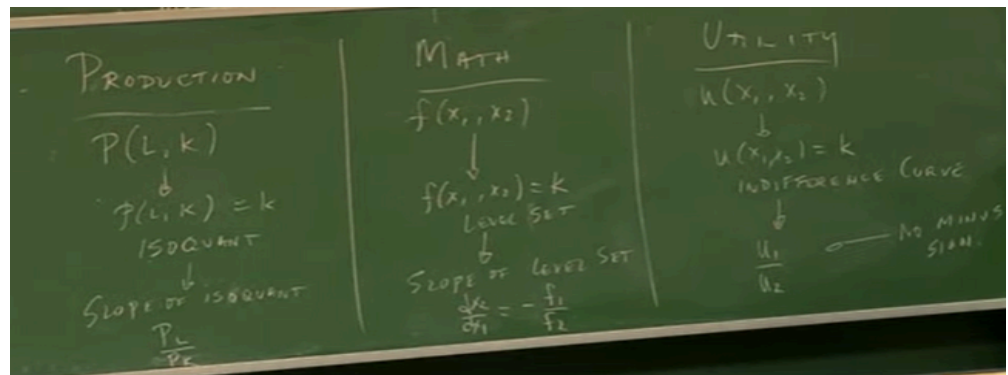 PRODUCTION
P(L, K)
↓
P(L, K) = k
ISOQUANT
↓
SLOPE OF ISOQUANT
P_L / P_K
MATH
f(x₁, x₂)
↓
f(x₁, x₂) = k
LEVEL SET
↓
SLOPE OF LEVEL SET
dx₂/dx₁ = - f₁/f₂
UTILITY
u(x₁, x₂)
↓
u(x₁, x₂) = k
INDIFFERENCE CURVE
↓
u₁ / u₂ NO MINUS
SIGN.